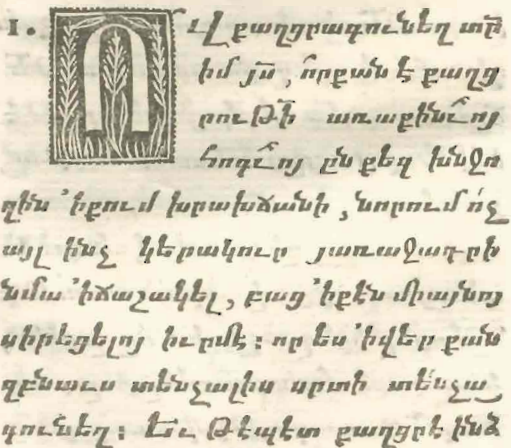 1. Ո՜վ քաղցրագունեղ տր̅
իմ յս̅, ո՜րքան է քաղց
րութի̅ առաքինւոյ
հոգւոյ ըն քեզ խնջո
ղին ՚ի քում խրախճանի, յորում ո՛չ
այլ ինչ կերակուր յառաջադրի
նմա ՚ի ճաշակել, բաց ՚ի քէն միայնոյ
սիրեցելոյ իւրմէ: որ ես ՚ի վեր քան
զբնաւս տենչալիս սրտի տենչա֊
գունեղ: Եւ թէպէտ քաղցրէ ինձ